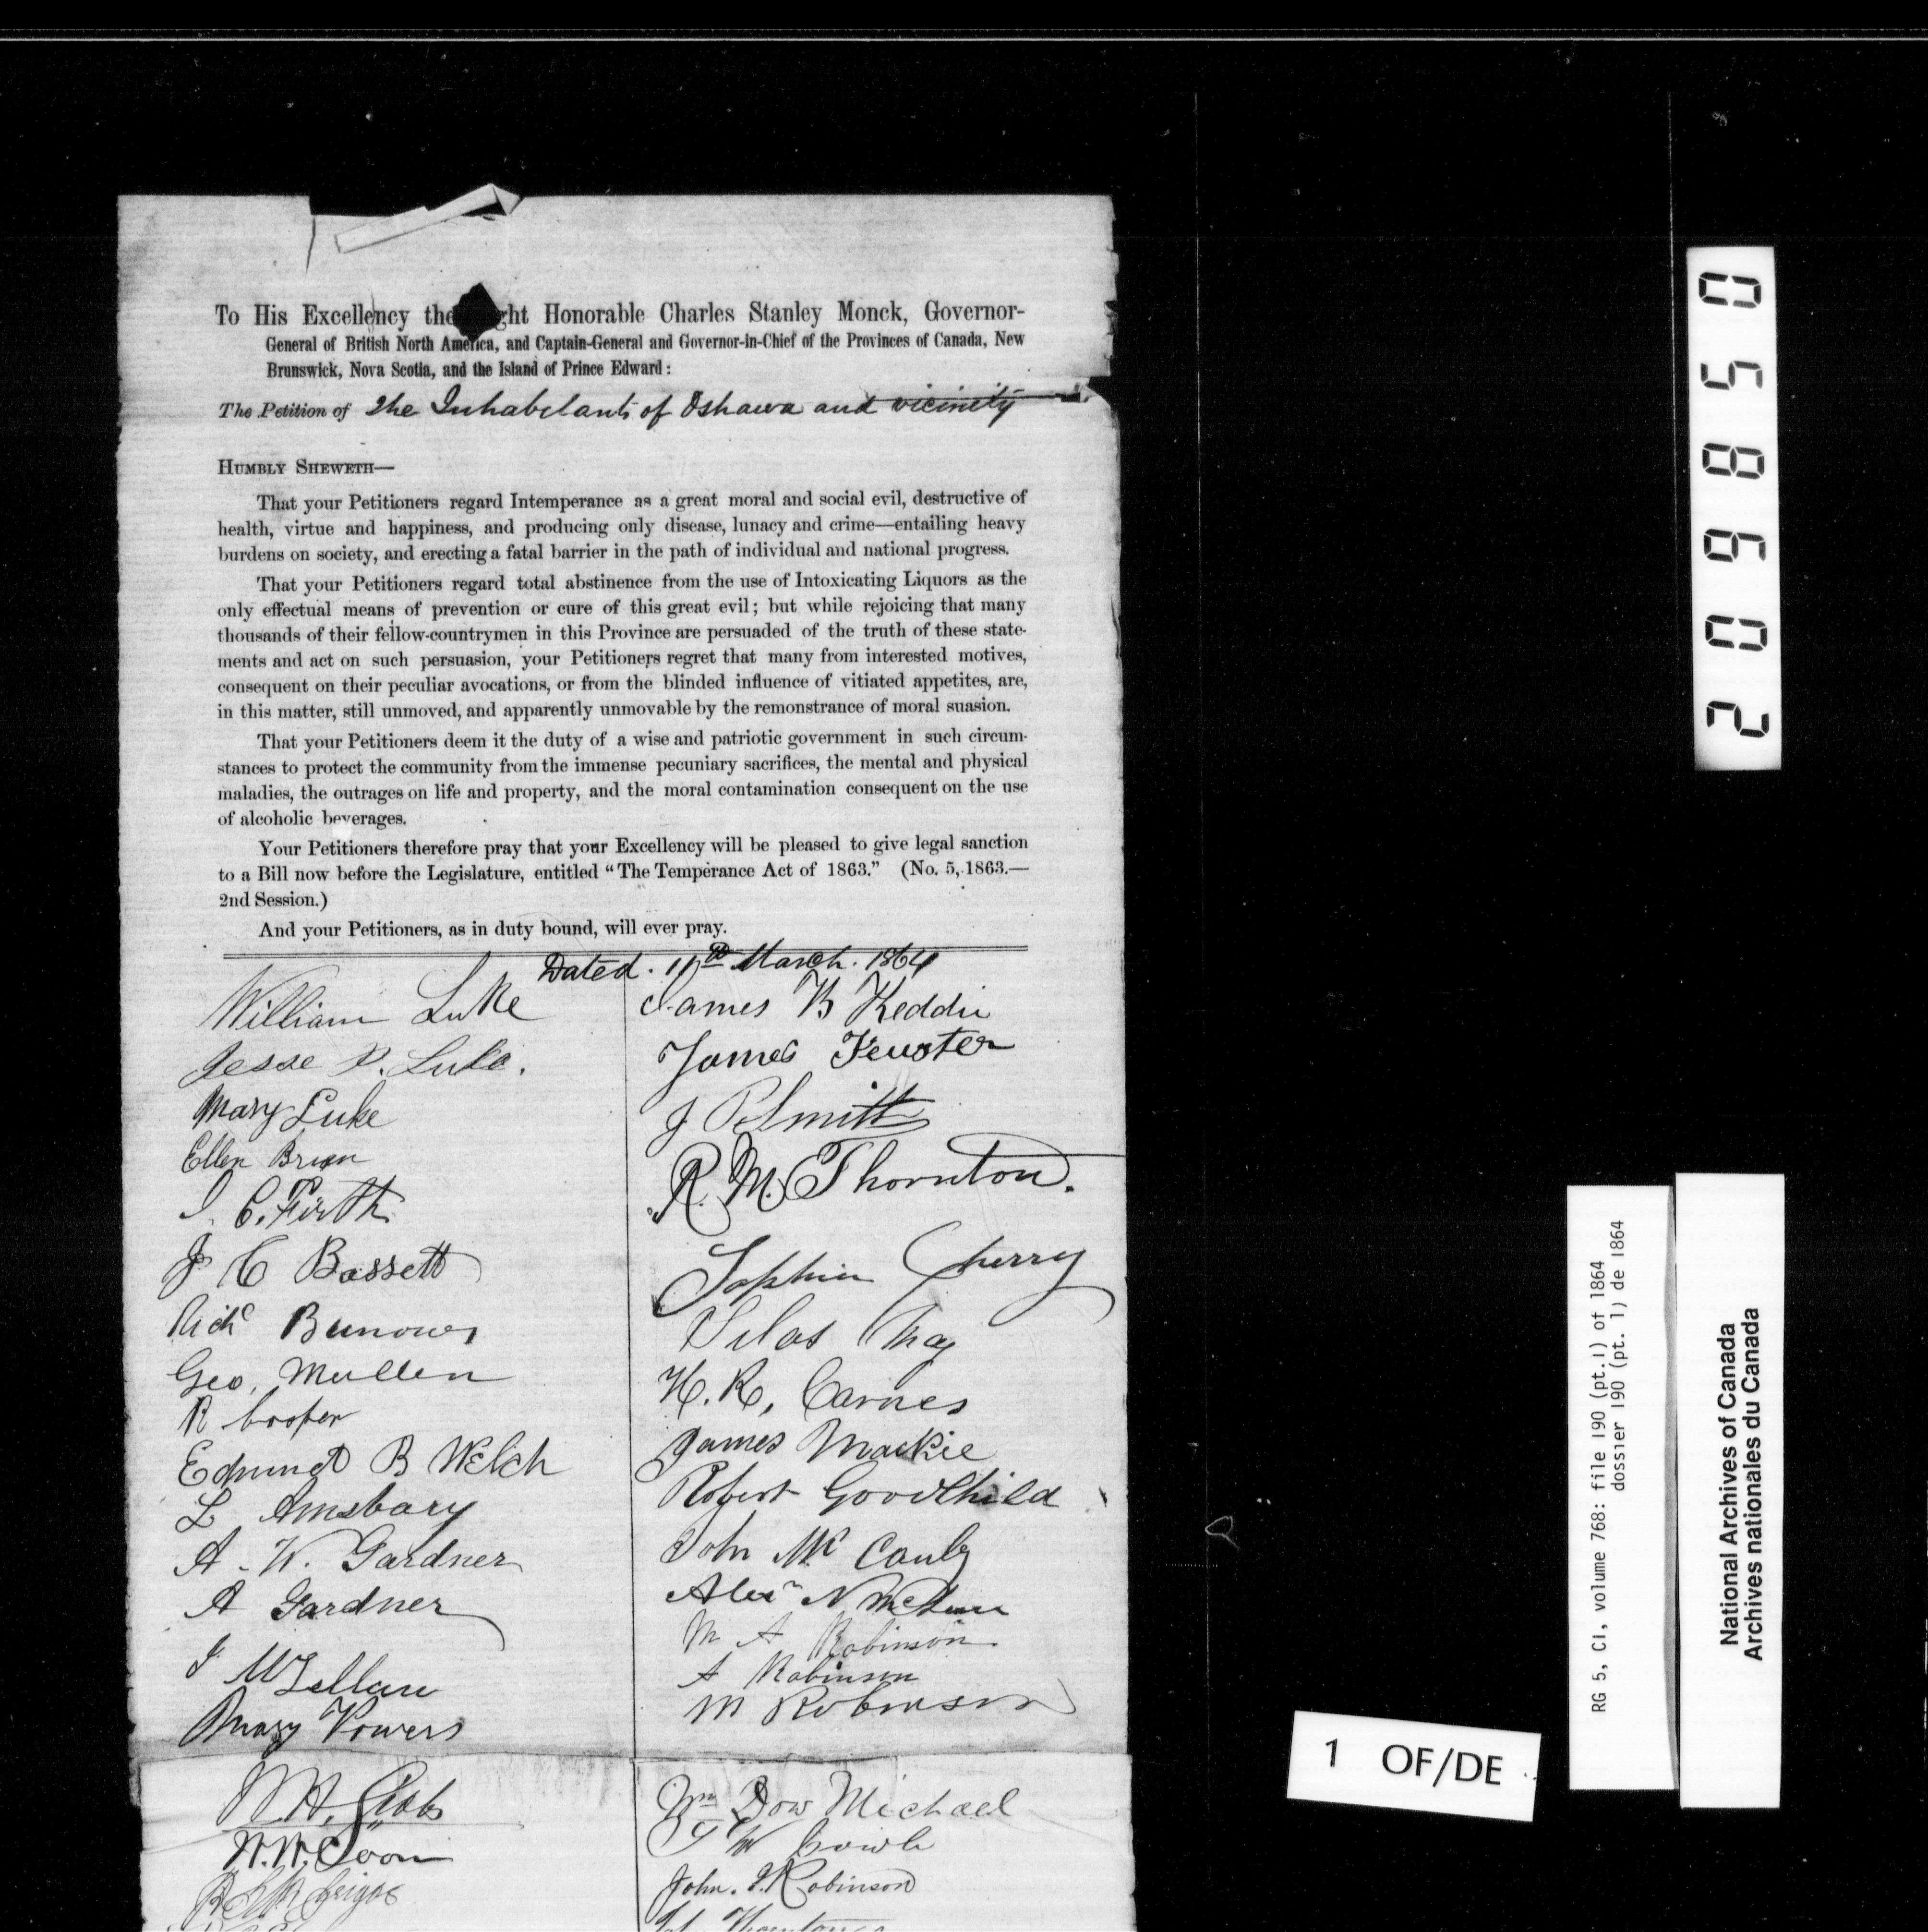 To His Excellency the ght Honorable Charles Stanley Monck, Governor-
General of British North America, and Captain-General and Governor-in-Chief of the Provinces of Canada, New
Brunswick, Nova Scotia, and the Island of Prince Edward:
The Petition of The Inhabitants of Oshawa and vicinity
HUMBLY SHEWETH—
That your Petitioners regard Intemperance as a great moral and social evil, destructive of
health, virtue and happiness, and producing only disease, lunacy and crime—entailing heavy
burdens on society, and erecting a fatal barrier in the path of individual and national progress.
That your Petitioners regard total abstinence from the use of Intoxicating Liquors as the
only effectual means of prevention or cure of this great evil; but while rejoicing that many
thousands of their fellow-countrymen in this Province are persuaded of the truth of these state-
ments and act on such persuasion, your Petitioners regret that many from interested motives,
consequent on their peculiar avocations, or from the blinded influence of vitiated appetites, are,
in this matter, still unmoved, and apparently unmovable by the remonstrance of moral suasion.
That your Petitioners deem it the duty of a wise and patriotic government in such circum-
stances to protect the community from the immense pecuniary sacrifices, the mental and physical
maladies, the outrages on life and property, and the moral contamination consequent on the use
of alcoholic beverages.
Your Petitioners therefore pray that your Excellency will be pleased to give legal sanction
to a Bill now before the Legislature, entitled “The Temperance Act of 1863.” (No. 5, 1863.—
2nd Session.)
And your Petitioners, as in duty bound, will ever pray.
Dated. 11th March. 1864
William Luke
Jesse Luke.
Mary Luke
Ellen
C. Firth
J C Bassett
Richd
Geo. Mullen
R Cooper
Edmund B Welch
L Amsbary
A. W. Gardner
A Gardner
J McLellan
Mary Powers
W. H. Gibbs
W. W.
James B Keddie
James
J Smith
R. M. Thornton.
Sophia Cherry
Silas May
H. R. Carnes
James Mackie
Robert Goodchild
John Mc
Alexr N
M A Robinson
A Robinson
M Robinson
Wm Dow Michael
W Cowle
John. J. Robinson
Thornton
2 0 9 8 5 0
RG 5, C1, volume 768: file 190 (pt.1) of 1864
dossier 190 (pt. 1) de 1864
National Archives of Canada
Archives nationales du Canada
1 OF/DE